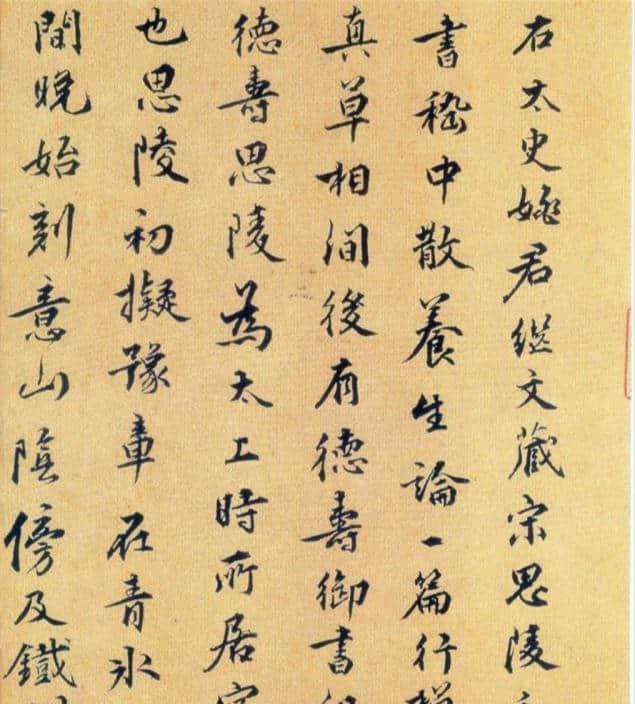 右太史姚君継文藏宋思陵
書嵇中散養生論一篇行
真草相間後有德壽御書
德壽思陵為太上時所居
也思陵初擬豫章在青氷
間晚始刻意山陰傍及鐵